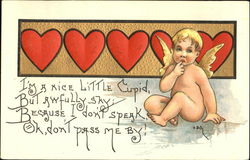 I'm a nice little Cupid,
But awfully shy;
Because I don't speak
Oh, don't pass me by!